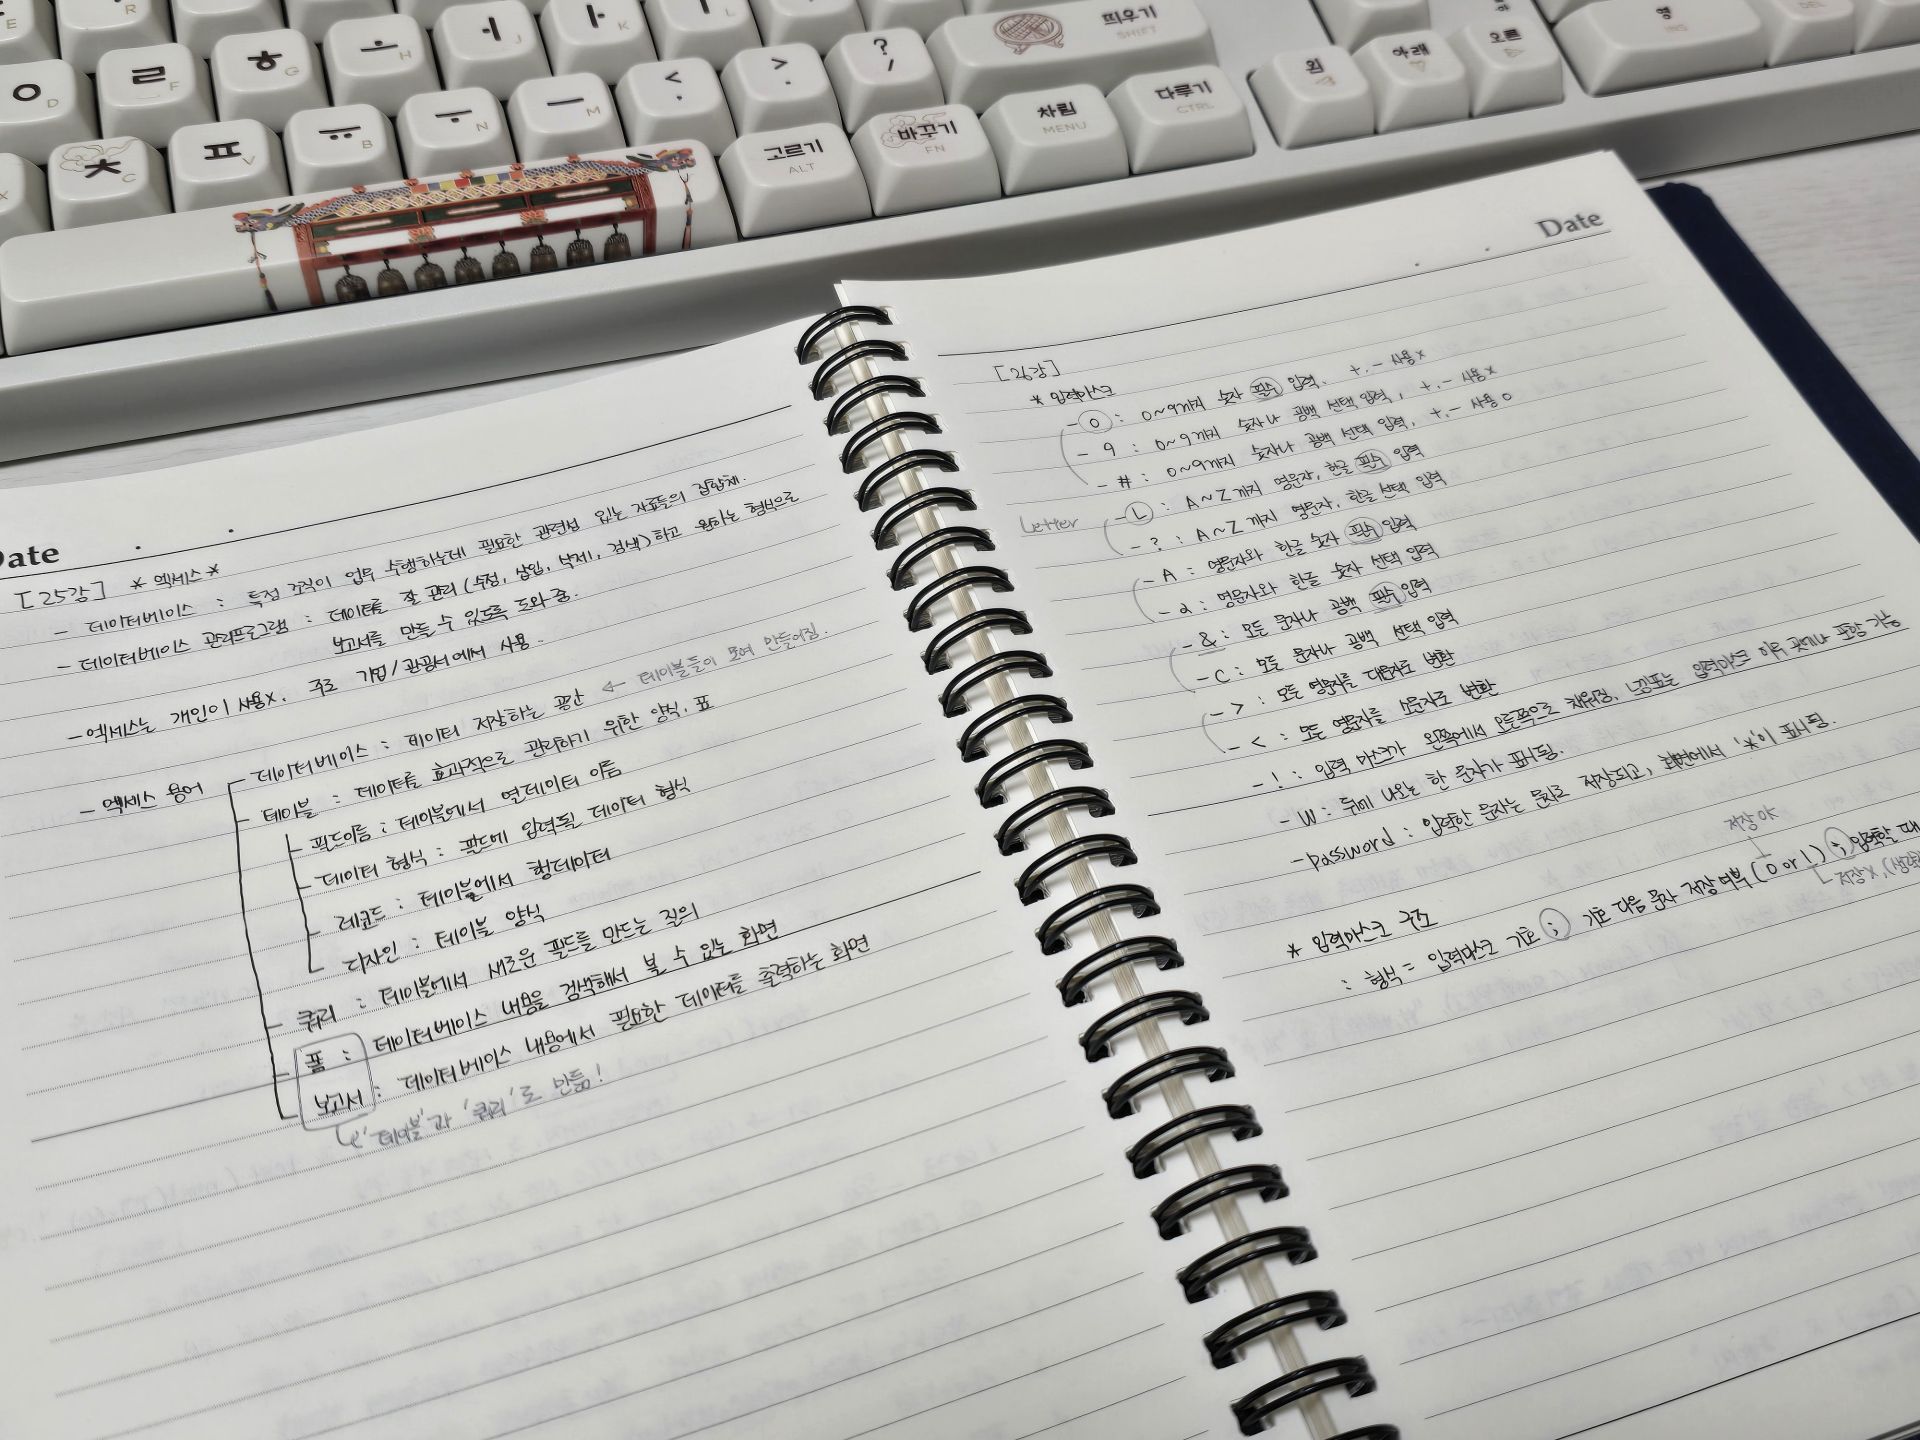 E R K L
ㅇ D ㄹ F ㅎ G ㅗ H ㅓ J ㅏ K ㅣ L
X ㅊ C ㅍ V ㅠ B ㅜ N ㅡ M < , > . ? / 띄우기 SHIFT
고르기 ALT 바꾸기 FN 차림 MENU 다루기 CTRL
왼 아래 오른 영 INS DEL
Date
[25강] * 엑세스 *
- 데이터베이스 : 특정 조직이 업무 수행하는데 필요한 관련성 있는 자료들의 집합체.
- 데이터베이스 관리프로그램 : 데이터를 잘 관리(수정, 삽입, 삭제, 검색)하고 원하는 형식으로
보고서를 만들 수 있도록 도와 줌.
- 엑세스는 개인이 사용x. 주로 기업/관공서에서 사용.
- 엑세스 용어
데이터베이스 : 데이터 저장하는 공간 ← 테이블들이 모여 만들어짐.
- 테이블 : 데이터를 효과적으로 관리하기 위한 양식. 표
- 필드이름 : 테이블에서 열데이터 이름
- 데이터 형식 : 필드에 입력될 데이터 형식
- 레코드 : 테이블에서 행데이터
디자인 : 테이블 양식
- 쿼리 : 테이블에서 새로운 필드를 만드는 질의
- 폼 : 데이터베이스 내용을 검색해서 볼 수 있는 화면
보고서 : 데이터베이스 내용에서 필요한 데이터를 출력하는 화면
'테이블'과 '쿼리'로 만듦!
Date
[26강]
* 입력마스크
- 0 : 0~9까지 숫자 필수 입력. +.- 사용x
- 9 : 0~9까지 숫자나 공백 선택 입력, +.- 사용x
- # : 0~9까지 숫자나 공백 선택 입력. +.- 사용o
Letter - L : A~Z까지 영문자, 한글 필수 입력
- ? : A~Z까지 영문자, 한글 선택 입력
- A : 영문자와 한글 숫자 필수 입력
- a : 영문자와 한글 숫자 선택 입력
- & : 모든 문자나 공백 필수 입력
- C : 모든 문자나 공백 선택 입력
- > : 모든 영문자를 대문자로 변환
- < : 모든 영문자를 소문자로 변환
- ! : 입력 마스크가 왼쪽에서 오른쪽으로 채워짐. 느낌표는 입력마스크 아무 곳에나 포함 가능
- \ : 뒤에 나오는 한 문자가 표시됨.
- password : 입력한 문자는 문자로 저장되고, 화면에서 '*'이 표시됨.
* 입력마스크 구조
: 형식 = 입력마스크 기호 ; 기호 다음 문자 저장여부(0 or 1) ; 입력할 때
저장 o
저장x, (생략